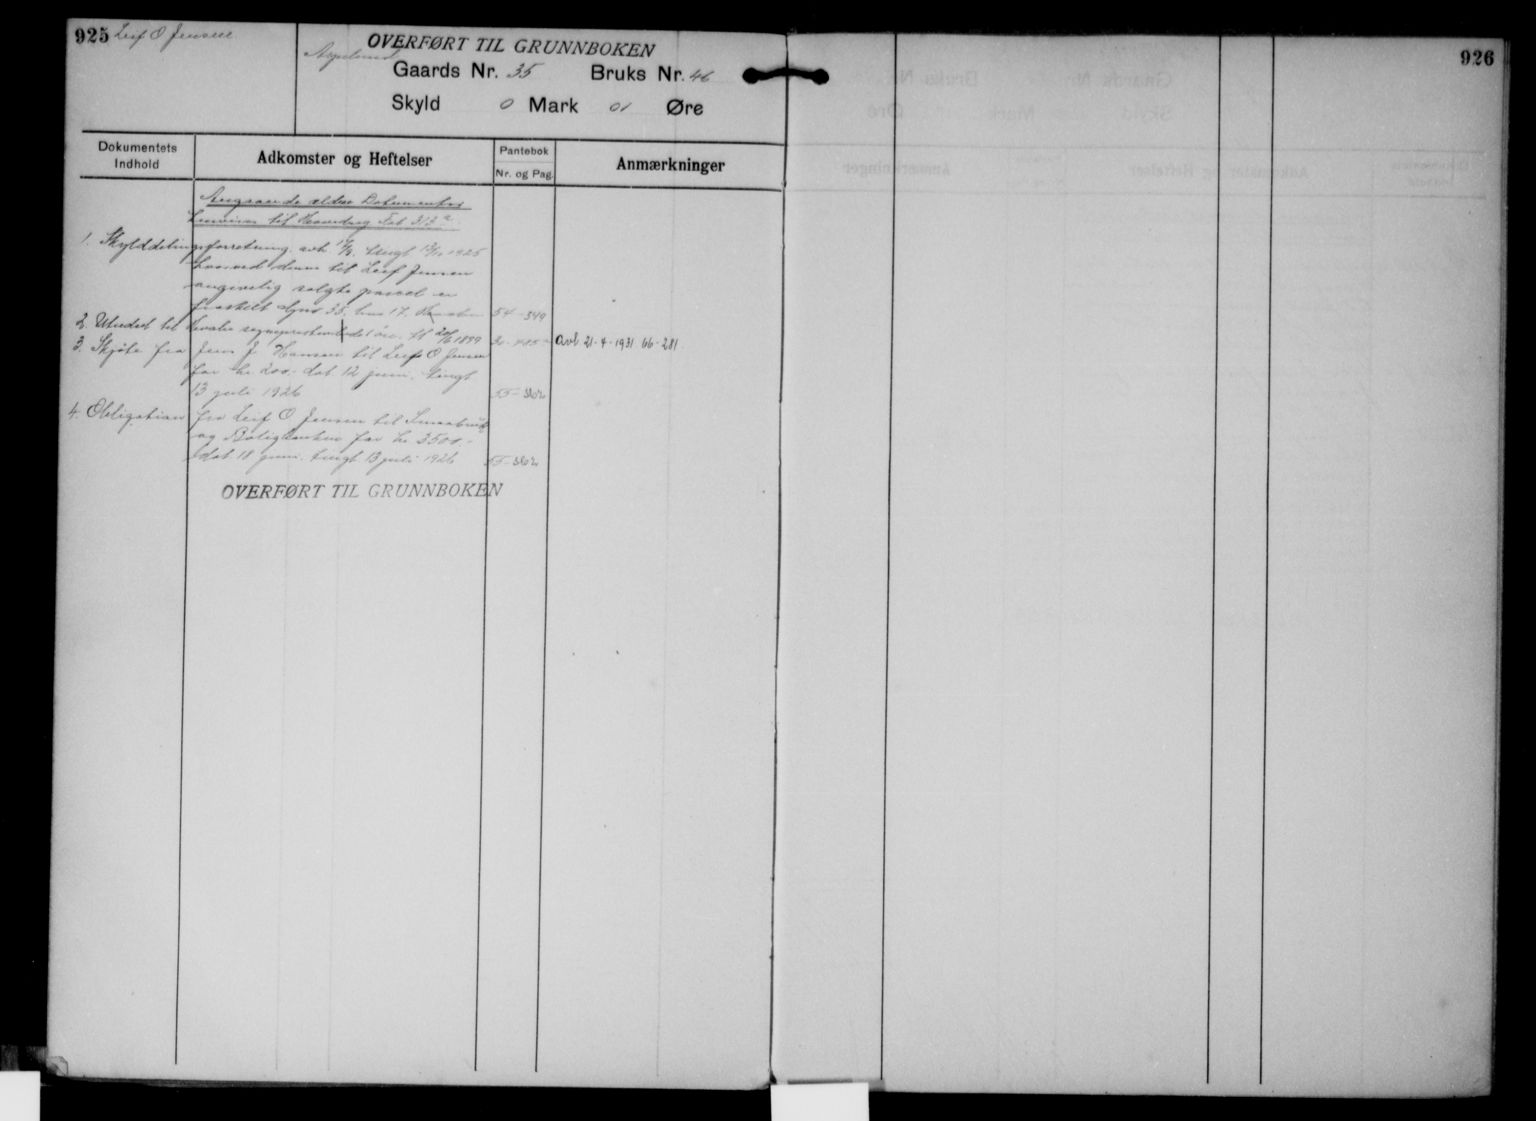 925 Leif O Jensen
OVERFØRT TIL GRUNNBOKEN
Gaards Nr. 35 Bruks Nr. 46
Skyld 0 Mark 01 Øre
926
Dokumentets Indhold
Adkomster og Heftelser
Pantebok
Nr. og Pag.
Anmærkninger
Angaaende ældre Dokumenter
henvises til Hovedbrug Fol 313 a
1. Skylddelingsforretning, avh. tingl 1925
hvorved denne til Leif Jensen
angivelig solgte parcel er
fraskilt gnr 35, bnr 17. 54-349
2. Utredsel til sogneprestembedet 1899
avl 21-4-1931 66-281
3. Skjøte fra Jens J Hansen til Leif O Jensen
for kr 200.- dat 12 juni, tingl
13 juli 1926 55-
4. Obligation fra Leif O Jensen til Smaabruk
og Boligbanken for kr 3500.-
dat 18 juni. tingl. 13 juli 1926 55-
OVERFØRT TIL GRUNNBOKEN